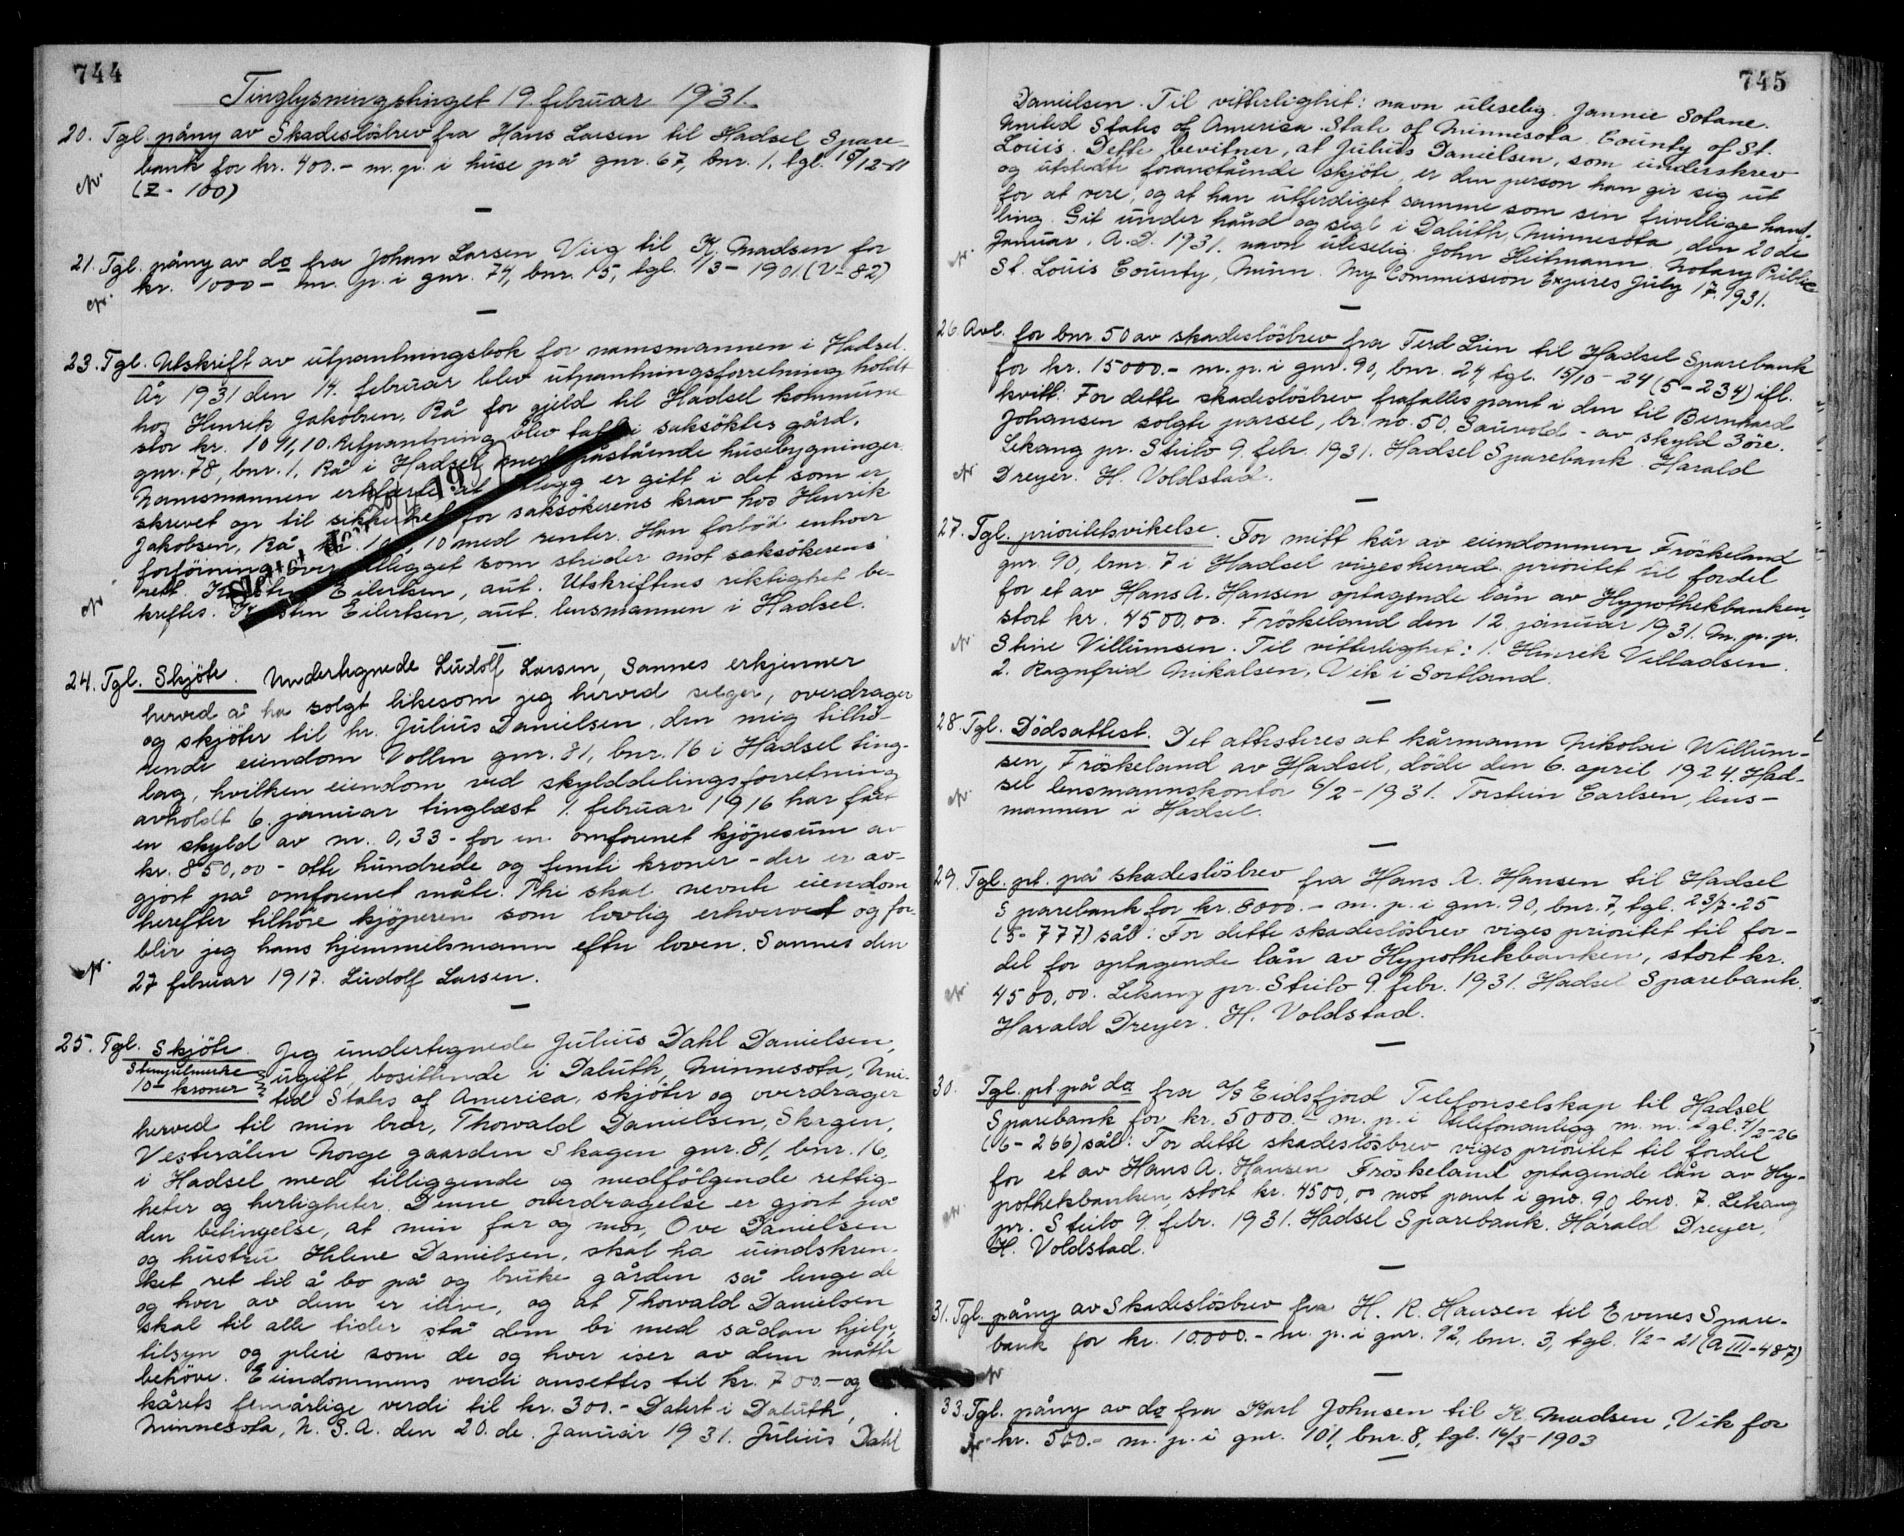 744
Tinglysningstinget 19. februar 1931.
20. Tgl. påny av Skadeslösbrev fra Hans Larsen til Hadsel Spare-
bank for kr. 400.- m. p. i huse på gnr. 67, bnr. 1, tgl. 15/12-11
(Z - 100)
21. Tgl. påny av do fra Johan Larsen Viig til K. Madsen for
kr. 1000 - m. p. i gnr. 74, bnr. 15, tgl. 1/3 - 1901 (V-82)
23. Tgl. Utskrift av utpantningsbok for namsmannen i Hadsel.
År 1931 den 14. februar blev utpantningsforretning holdt
hos Henrik Jakobsen, Rå for gjeld til Hadsel kommune
stor kr. 1041,10. Utpantning blev tatt i saksöktes gård,
gnr. 78, bnr. 1, Rå i Hadsel med påstående husebygninger
Namsmannen erklærte at utlegg er gitt i det som er
skrevet op til sikkerhet for saksökerens krav hos Henrik
Jakobsen, Rå kr. 1041,10 med renter. Han forböd enhver
forföining over utlegget som strider mot saksökerens
rett. Torstein Eilertsen, aut. Utskriftens riktighet be-
kreftes. Torstein Eilertsen, aut. lensmannen i Hadsel.
24. Tgl. Skjöte. Undertegnede Ludolf Larsen, Sannes erkjenner
herved å ha solgt likesom jeg herved selger, overdrager
og skjöter til hr. Julius Danielsen, den mig tilhö-
rende eiendom Vollen gnr. 81, bnr. 16 i Hadsel ting-
lag, hvilken eiendom ved skylddelingsforretning
avholdt 6. januar tinglæst 1. februar 1916 har fått
en skyld av m. 0,33 - for en omforenet kjöpesum av
kr. 850,00 - otte hundrede og femti kroner - der er av-
gjort på omforenet måte. Thi skal nevnte eiendom
herefter tilhöre kjöperen som lovlig erhvervet og for-
blir jeg hans hjemmelsmann efter loven. Sannes den
27 februar 1917. Ludolf Larsen.
25. Tgl. Skjöte Jeg undertegnede Julius Dahl Danielsen,
Stempelmerke 10- kroner ugift, bosittende i Daluth, Minnesota, Uni-
ted States of America, skjöter og overdrager
herved til min bror, Thorvald Danielsen, Skagen,
Vesterålen Norge gaarden Skagen gnr. 81, bnr. 16,
i Hadsel med tilliggende og medfölgende rettig-
heter og herligheter. Denne overdragelse er gjort på
den betingelse, at min far og mor, Ove Danielsen
og hustru Helene Danielsen, skal ha uindskren-
ket ret til å bo på og bruke gården så lenge de
og hver av dem er ilive, og at Thorvald Danielsen
skal til alle tider stå dem bi med sådan hjelp,
tilsyn og pleie som de og hver især av dem måtte
behöve. Eiendommens verdi ansettes til kr. 700.- og
kårets femårlige verdi til kr. 300.- Datert i Daluth,
Minnesota, U. S. A. den 20. de. Januar 1931. Julius Dahl
745
Danielsen. Til vitterlighet: navn uleselig. Jannie Solane.
United States of America. State of Minnesota. County of St.
Louis. Dette bevitner, at Julius Danielsen, som underskrev
og utstedte foranstående skjöte, er den person han gir sig ut
for at vere, og at han utferdiget samme som sin frivillige hand-
ling. Git under hånd og segl i Daluth, Minnesota, den 20 de
Januar, A. D. 1931. navn uleselig John Heitmann, Notary Public
St. Louis County, Minn. My Commission Expires July 17. 1931.
26. Avl. for bnr. 50 av skadeslösbrev fra Ferd Lien til Hadsel Sparebank
for kr. 15000.- m. p. i gnr. 90, bnr. 24, tgl. 15/10 - 24 (5-234) ifl.
kvitt: For dette skadeslösbrev frafalles pant i den til Bernhard
Johansen solgte parsel, br. no. 50, Sauvold - av skyld 3 öre.
Lekang pr. Stilo 9. febr. 1931. Hadsel Sparebank. Harald
Dreyer. H. Voldstad.
27. Tgl. prioritetsvikelse. For mitt kår av eiendommen Fröskeland
gnr. 90, bnr. 7 i Hadsel viges herved prioritet til fordel
for et av Hans A. Hansen optagende lån av Hypothekbanken,
stort kr. 4500,00. Fröskeland den 12 januar 1931. m. p. p.
Stine Villumsen. Til vitterlighet: 1. Henrik Villadsen.
2. Ragnfrid Mikalsen, Vik i Sortland.
28. Tgl. Dödsattest. Det attesteres at kårmann Nikolai Willum-
sen, Fröskeland av Hadsel, döde den 6. april 1924. Had-
sel lensmannskontor 6/2 - 1931. Torstein Carlsen, lens-
mannen i Hadsel.
29. Tgl. pt. på skadeslösbrev fra Hans A. Hansen til Hadsel
Sparebank for kr. 8000.- m. p. i gnr. 90, bnr. 7, tgl. 23/7-25
(5-777) sål: For dette skadeslösbrev viges prioritet til for-
del for optagende lån av Hypothekbanken, stort kr.
4500,00. Lekang pr. Stilo 9. febr. 1931. Hadsel Sparebank.
Harald Dreyer. H. Voldstad.
30. Tgl. pt på do fra A/S Eidsfjord Telefonselskap til Hadsel
Sparebank for kr. 5000.- m. p. i telefonanlegg m. m. tgl. 7/2-26
(6-266) sål: For dette skadeslösbrev viges prioritet til fordel
for et av Hans A. Hansen Fröskeland optagende lån av Hy-
pothekbanken, stort kr. 4500,00 mot pant i gno. 90, bno. 7. Lekang
pr. Stilo 9. febr. 1931. Hadsel Sparebank. Harald Dreyer,
H. Voldstad.
31. Tgl. påny av Skadeslösbrev fra H. R. Hansen til Evenes Spare-
bank for kr. 10.000.- m. p. i gnr. 92, bnr. 3, tgl. 1/2 - 21 (A III-487)
33. Tgl. påny av do fra Karl Johnsen til K. Madsen, Vik for
kr. 500.- m. p. i gnr. 101, bnr. 8, tgl. 16/3 - 1903